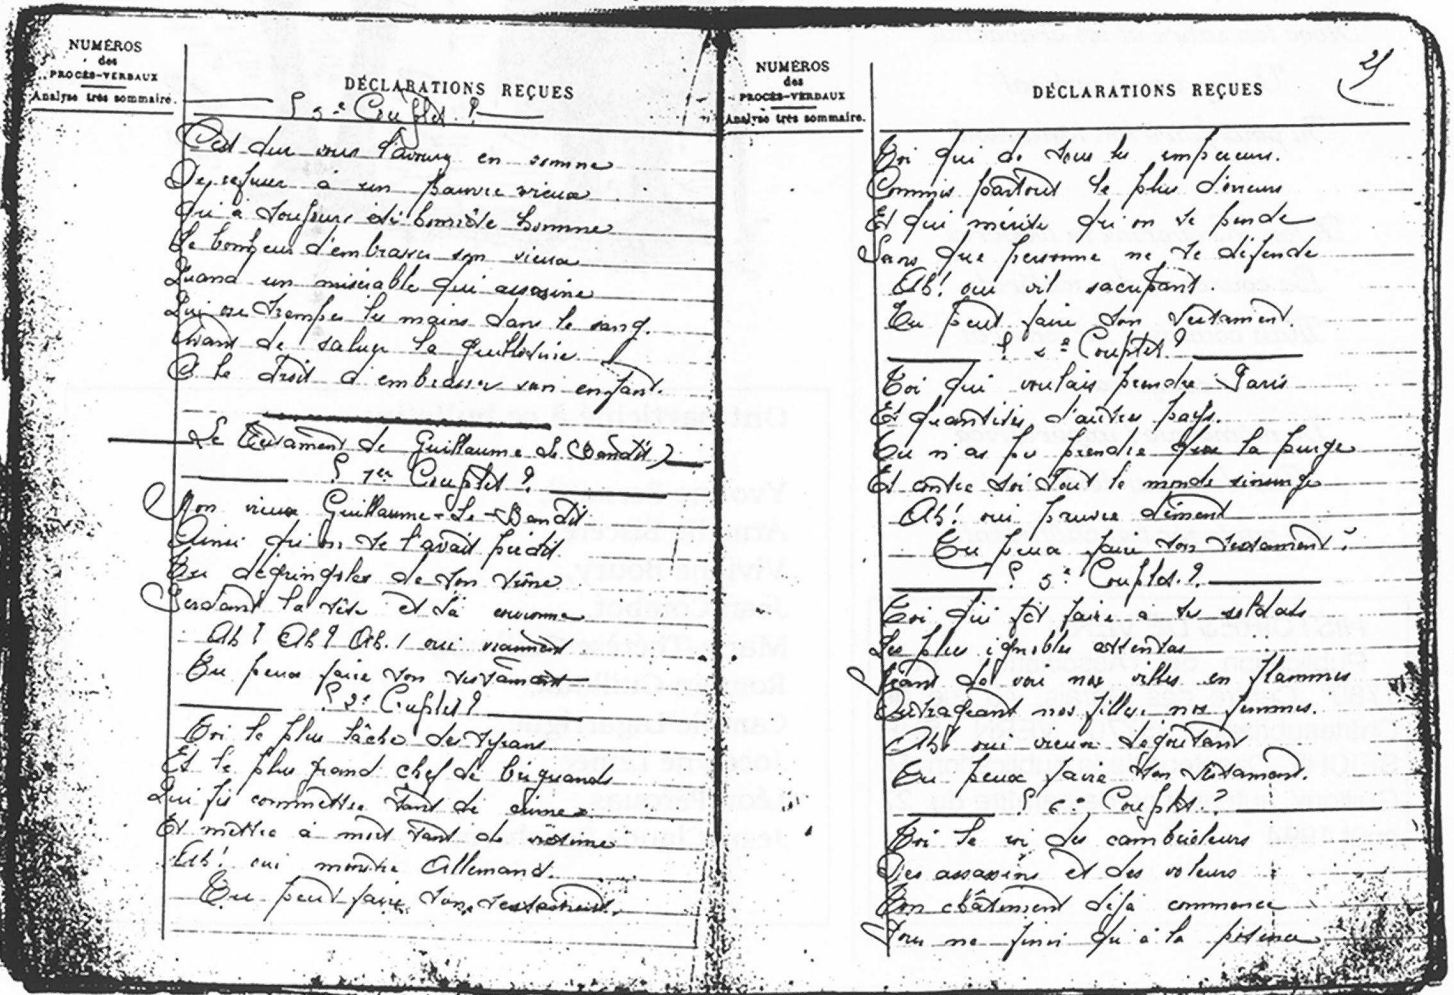 NUMÉROS
des
PROCÈS-VERBAUX
Analyse très sommaire.
DÉCLARATIONS REÇUES
3e Couplet
C'est dur vous l'avouez en somme
De refuser à un pauvre vieux
Qui a toujours été honnête homme
Le bonheur d'embrasser son vieux
Quand un misérable qui assasine
Qui ose tremper les mains dans le sang.
Avant de saluer la guillotine
A le droit d'embrasser son enfant.
Le Testament de Guillaume le Bandit
1er Couplet
Mon vieux Guillaume-Le-Bandit
Ainsi qu'on te l'avait prédit
Tu dégringoles de ton trône
Perdant la tête et ta couronne
Ah! Ah! Ah! oui vraiment
Tu peux faire ton testament
2e Couplet
Toi le plus lâche des tyrans
Et le plus grand chef de brigands
Qui fis commettre tant de crimes
Et mettre à mort tant de victime
Ah! oui monstre Allemand.
Tu peut faire ton testament.
NUMÉROS
des
PROCÈS-VERBAUX
Analyse très sommaire.
DÉCLARATIONS REÇUES
Toi qui de tous les empereurs.
Commis partout le plus d'erreurs
Et qui mérite qu'on te pende
Sans que personne ne te défende
Ah! oui vil sacripant
Tu peut faire ton testament
Couplet
Toi qui voulais prendre Paris
Et quantités d'autres pays.
Tu n'as pu prendre que la purge
Et contre toi tout le monde s'insurge
Ah! oui pauvre dément
Tu peux faire ton testament.
5e Couplet
Toi qui fit faire a tes soldats
Les plus ignobles attentas
Outrageant nos filles, nos femmes.
Ah! oui vieux dégoûtant
Tu peux faire ton testament.
Couplet
Toi le roi des cambrioleurs
Des assassins et des voleurs
Ton châtiment déjà commence
Pour ne finir qu'à la potence